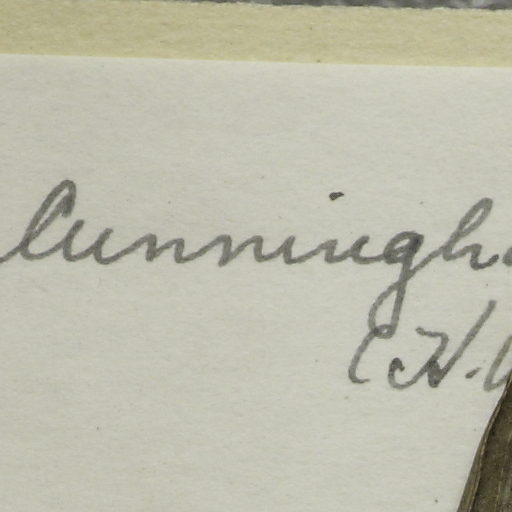 Cunningha
(H.